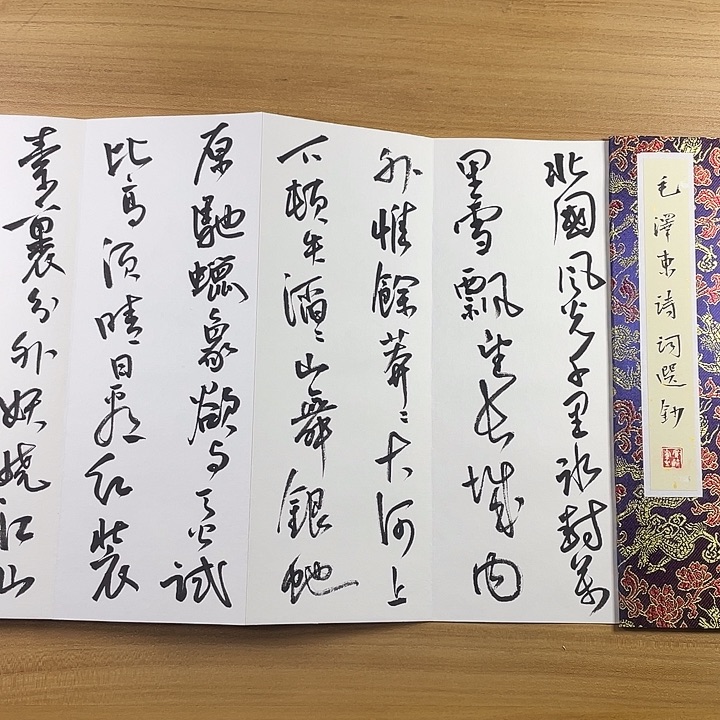 毛澤東诗词選鈔
北國风光千里冰封萬
里雪飄望长城内
外惟餘莽〻大河上
下頓失滔〻山舞銀蛇
原馳蠟象欲与天公試
比高须晴日看红装
素裹分外妖娆江山